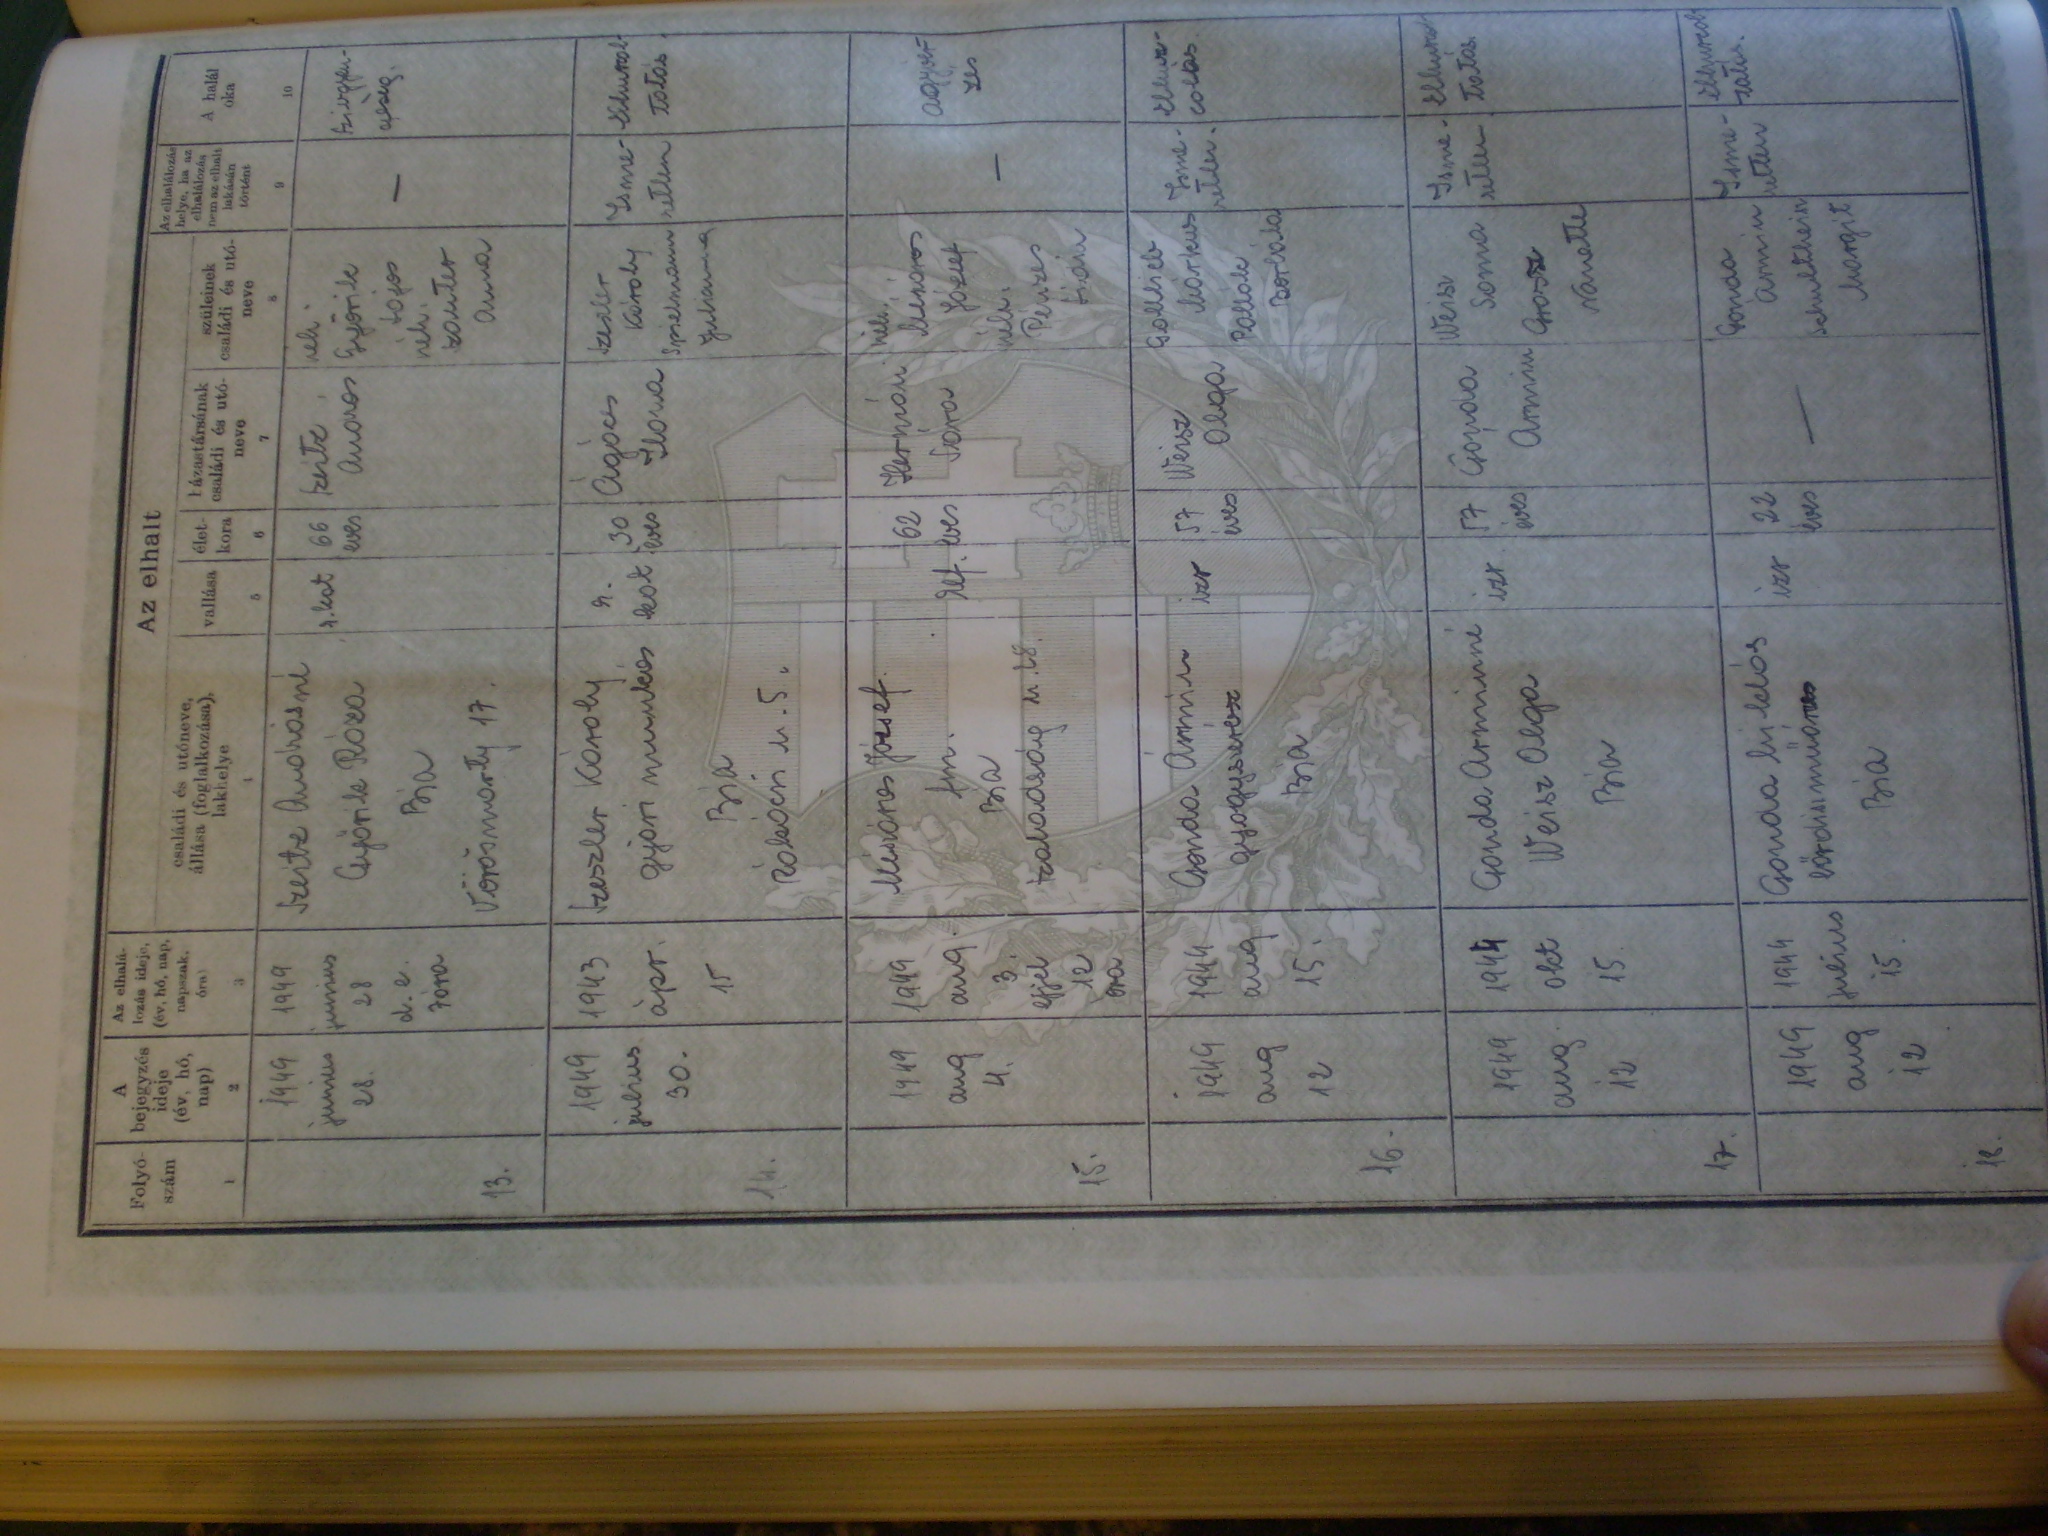 Az elhalt
Folyó-
szám
1
A
bejegyzés
ideje
(év, hó,
nap)
2
Az elhalá-
lozás ideje,
(év, hó, nap,
napszak,
óra)
3
családi és utóneve,
állása (foglalkozása),
lakhelye
4
vallása
5
élet-
kora
6
házastársának
családi és utó-
neve
7
szüleinek
családi és utó-
neve
8
Az elhalálozás
helye, ha az
elhalálozás
nem az elhalt
lakásán
történt
9
A halál
oka
10
13.
1949
junius
28.
1949
junius
28
d. e.
7 óra
Szeitz Andrásné
Győrik Róza
Bia
Vörösmarty 17.
r. kat
66
éves
Szeitz
András
néh.
Győrik
Lajos
néh.
Anna
—
14.
1949
julius
30.
1943
ápr.
15
Szeszler Károly
gyári munkás
Bia
Rákóczi u. 5.
r.
kat
30
éves
Ágócs
Ilona
Szeszler
Károly
Julianna
Isme-
retlen
15.
1949
aug
4.
1949
aug.
3.
éjjel
12
óra
Mészáros József.
fm.
Bia
Szabadság u. 28.
Ref.
62
éves
Sára
néh.
Mészáros
József
néh.
—
16.
1949
aug
12
1944
aug
15.
Gonda Ármin
gyógyszerész
Bia
izr
57
éves
Weisz
Olga
Márkus
Pollák
Borbála
Isme-
retlen.
17.
1949
aug.
12
1944
okt
15.
Gonda Árminné
Weisz Olga
Bia
izr
57
éves
Gonda
Ármin
Weisz
Grosz
Isme-
retlen
18.
1949
aug
12
1944
julius
15.
Gonda
Bia
izr
22
éves
—
Gonda
Ármin
Margit
Isme-
retlen